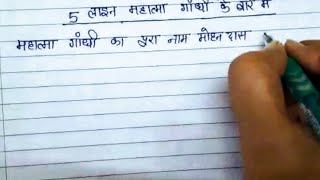 5 लाइन महात्मा गाँधी के बारे में
महात्मा गाँधी का पुरा नाम मोहन दास